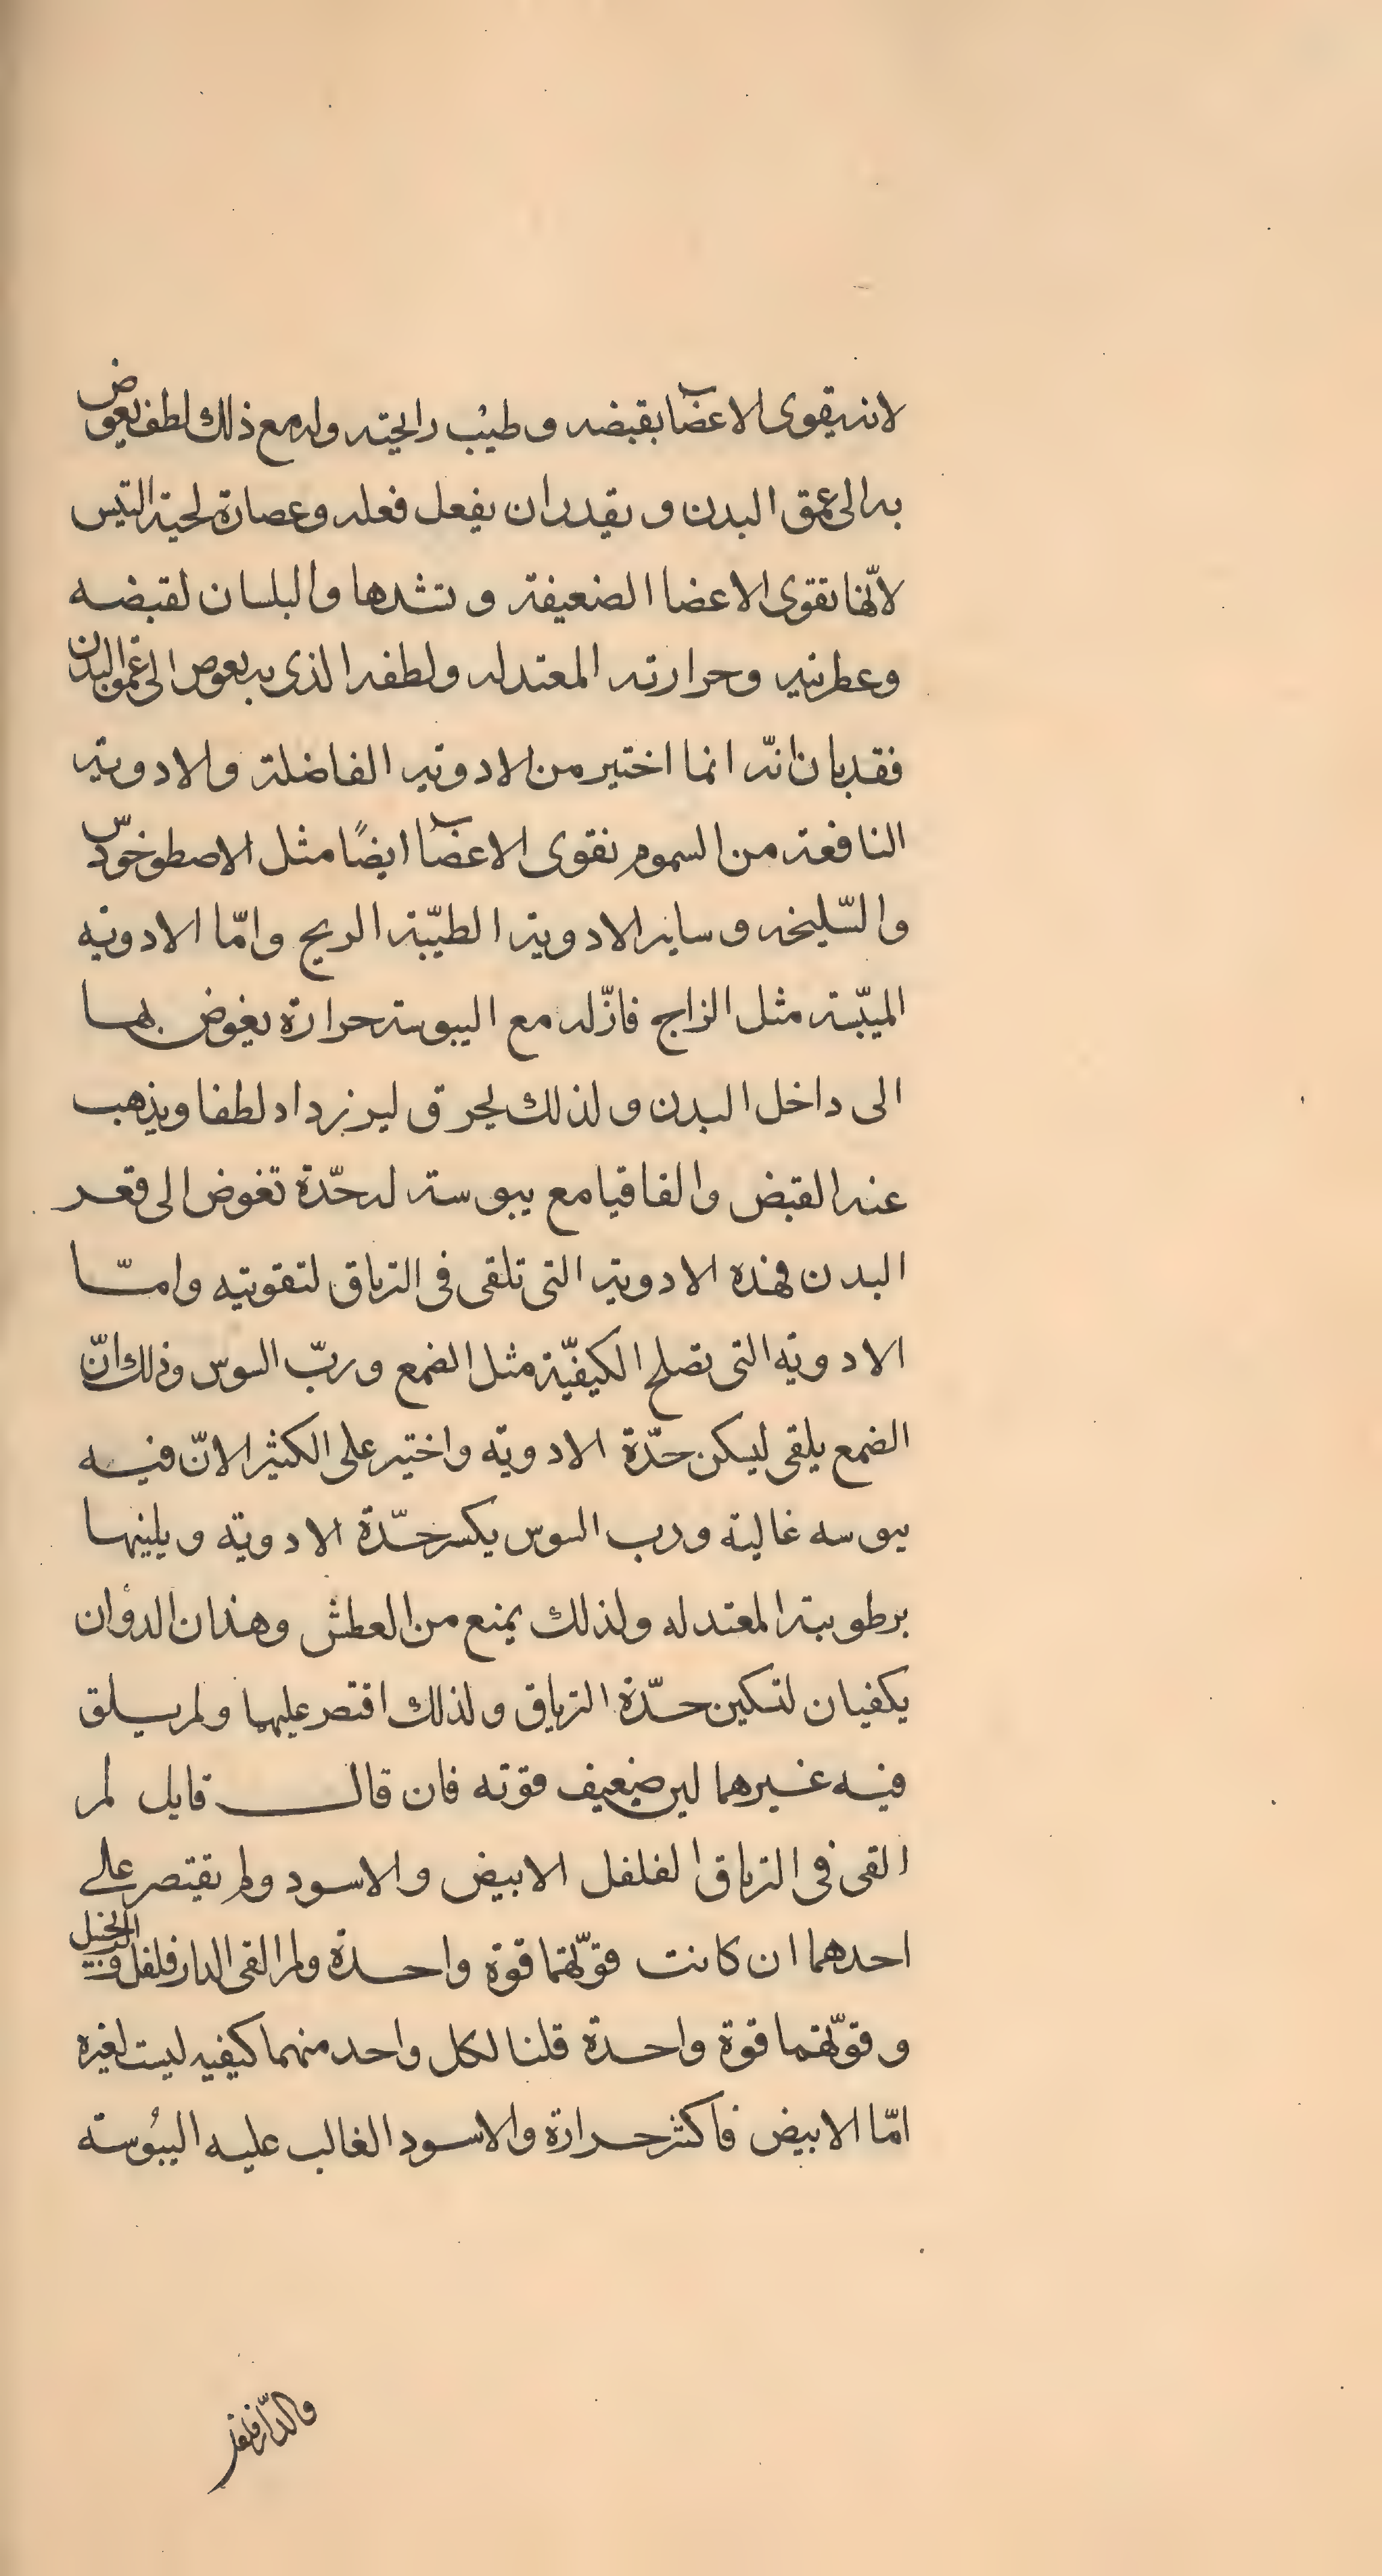 لانه يقوى الاعضا بقبضه وطيب رايحته وله مع ذلك لطف يغوض
به الى عمق البدن ويقدر ان يفعل فعله وعصارة لحية التيس
لانّها تقوى الاعضا الضعيفة وتشدها والبلسان لقبضه
وعطريته وحرارته المعتدله ولطفه الذى به يغوص الى عمق البدن
فقد بان انّه انما اختير من الادوية الفاضلة والادوية
النافعة من السموم تقوى الاعضا ايضًا مثل الاصطوخودس
والسّليخه وساير الادوية الطيّبة الريح وامّا الادوية
الميبّسة مثل الزاج فانّ له مع اليبوسة حرارة يغوض بها
الى داخل البدن ولذلك يحرق ليزداد لطفا ويذهب
عنه القبض والقاقيا مع يبوسته له حّدة تغوض الى قعر
البدن فهذه الادوية التى تلقى فى الترياق لتقويته وامّا
الادوية التى تصلح الكيفيّة مثل الضمع وربّ السوس وذلك انّ
الضمع يلقى ليسكن حدّة الادوية واختير على الكثيرا لانّ فيه
يبوسه غالبة ورب السوس يكسر حدّة الادوية ويلينها
برطوبته المعتدله ولذلك يمنع من العطش وهذان الدوان
يكفيان لتسكين حدّة الترياق ولذلك اقتصر عليهما ولم يلق
فيه غيرهما ليس ضعيف قوته فان قال قايل لم
القى فى الترياق الفلفل الابيض والاسود ولم يقتصر على
احدهما ان كانت قوّتهما قوة واحدة ولم القى الدارفلفل والزنجبيل
وقوّتهما قوة واحدة قلنا لكل واحد منهما كيفيه ليست لغيره
امّا الابيض فاكثر حرارة والاسود الغالب عليه اليبُوسة
والدّارفلفل